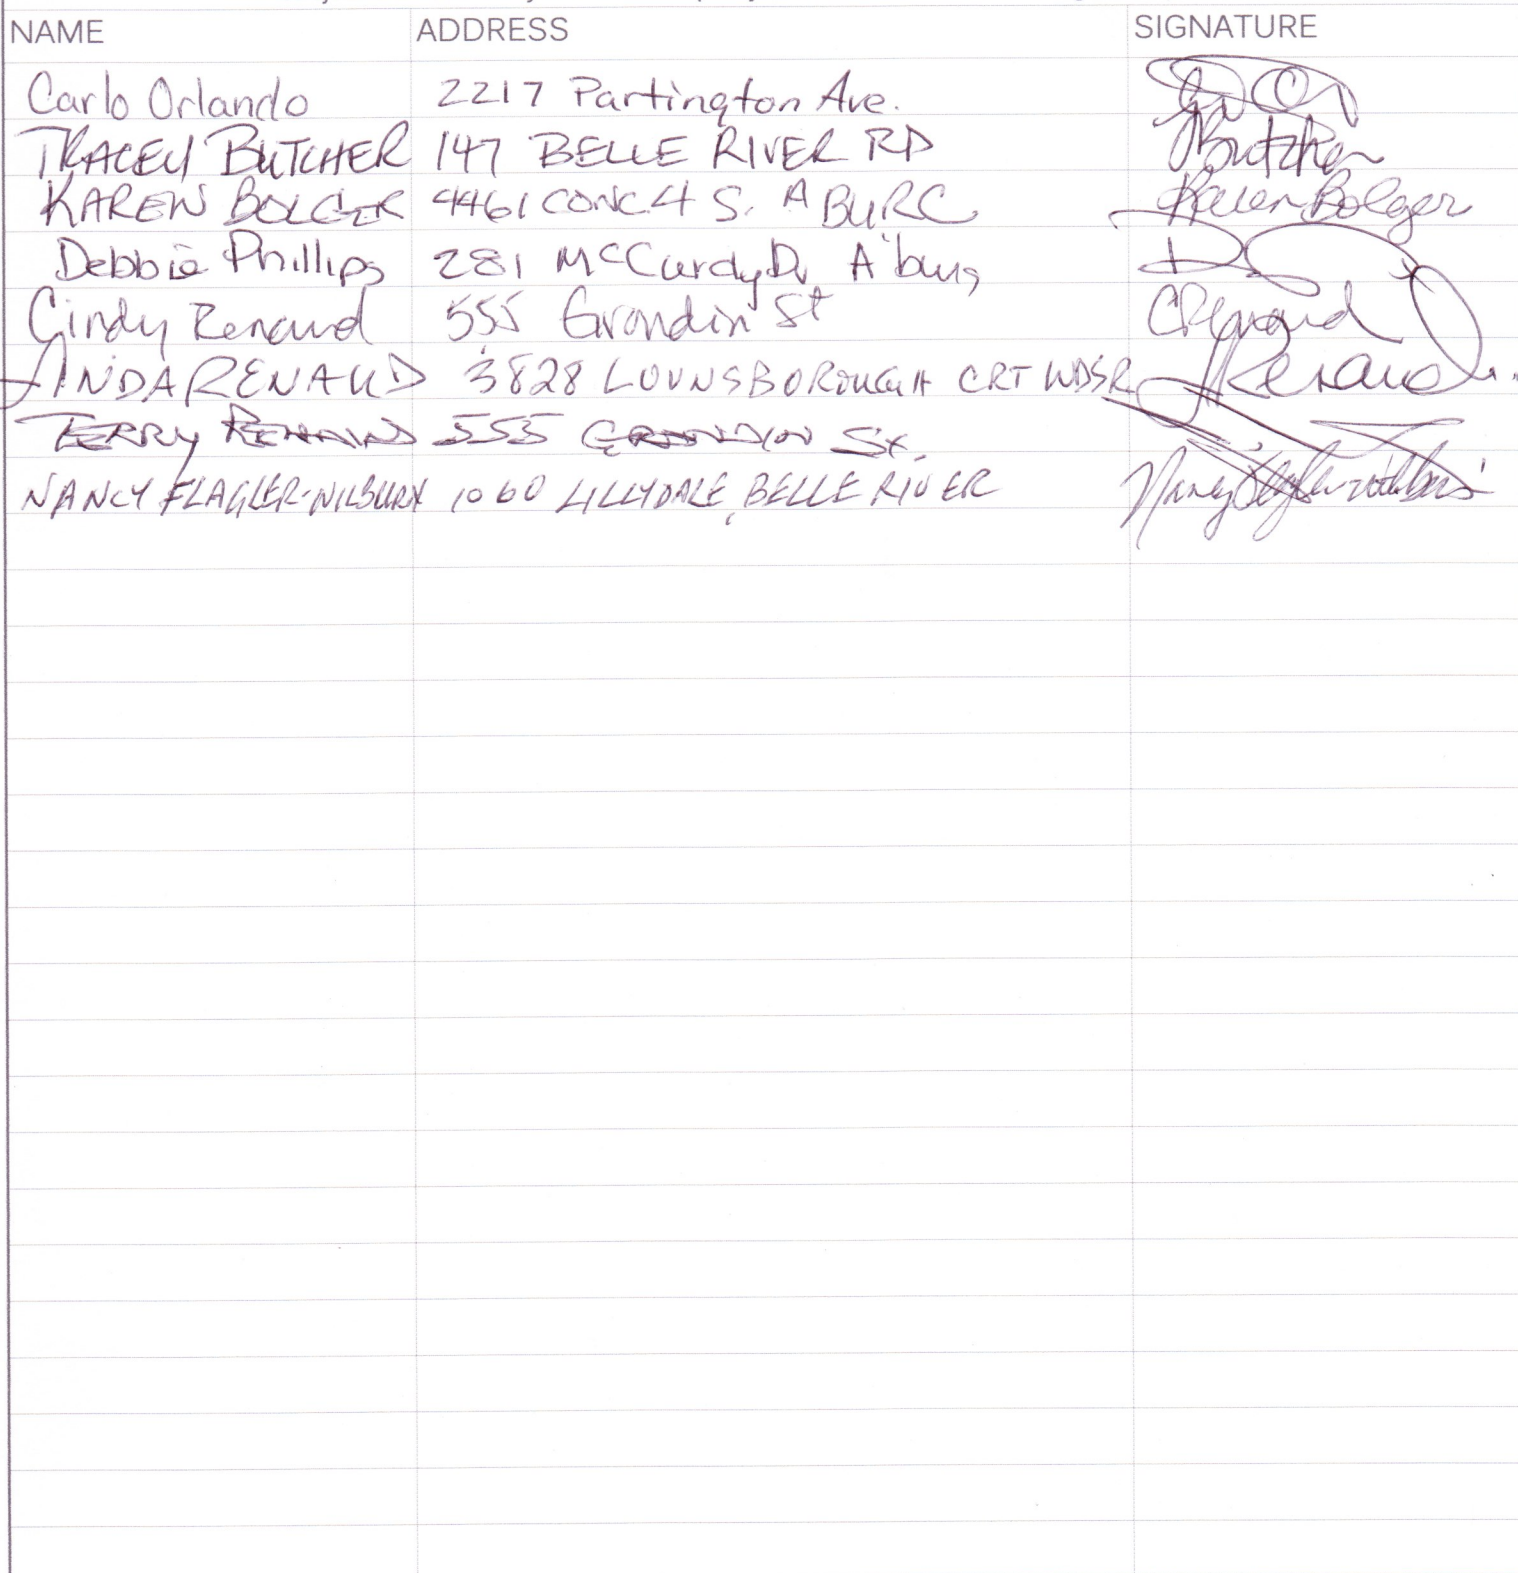 NAME ADDRESS SIGNATURE
Carlo Orlando 2217 Partington Ave.
TRACEY BUTCHER 147 BELLE RIVER RD TButcher
KAREN BOLGER 4461 CONC 4 S. ABURG Karen Bolger
Debbie Phillips 281 McCurdy Dr A'burg
Cindy Renaud 555 Grondin St CRenaud
LINDA RENAUD 3828 LOUNSBOROUGH CRT WDSR LRenaud
TERRY RENAUD 555 GRONDIN St.
NANCY FLAGLER-WILBURN 1060 LILLYDALE, BELLE RIVER Nancy Flagler-Wilburn